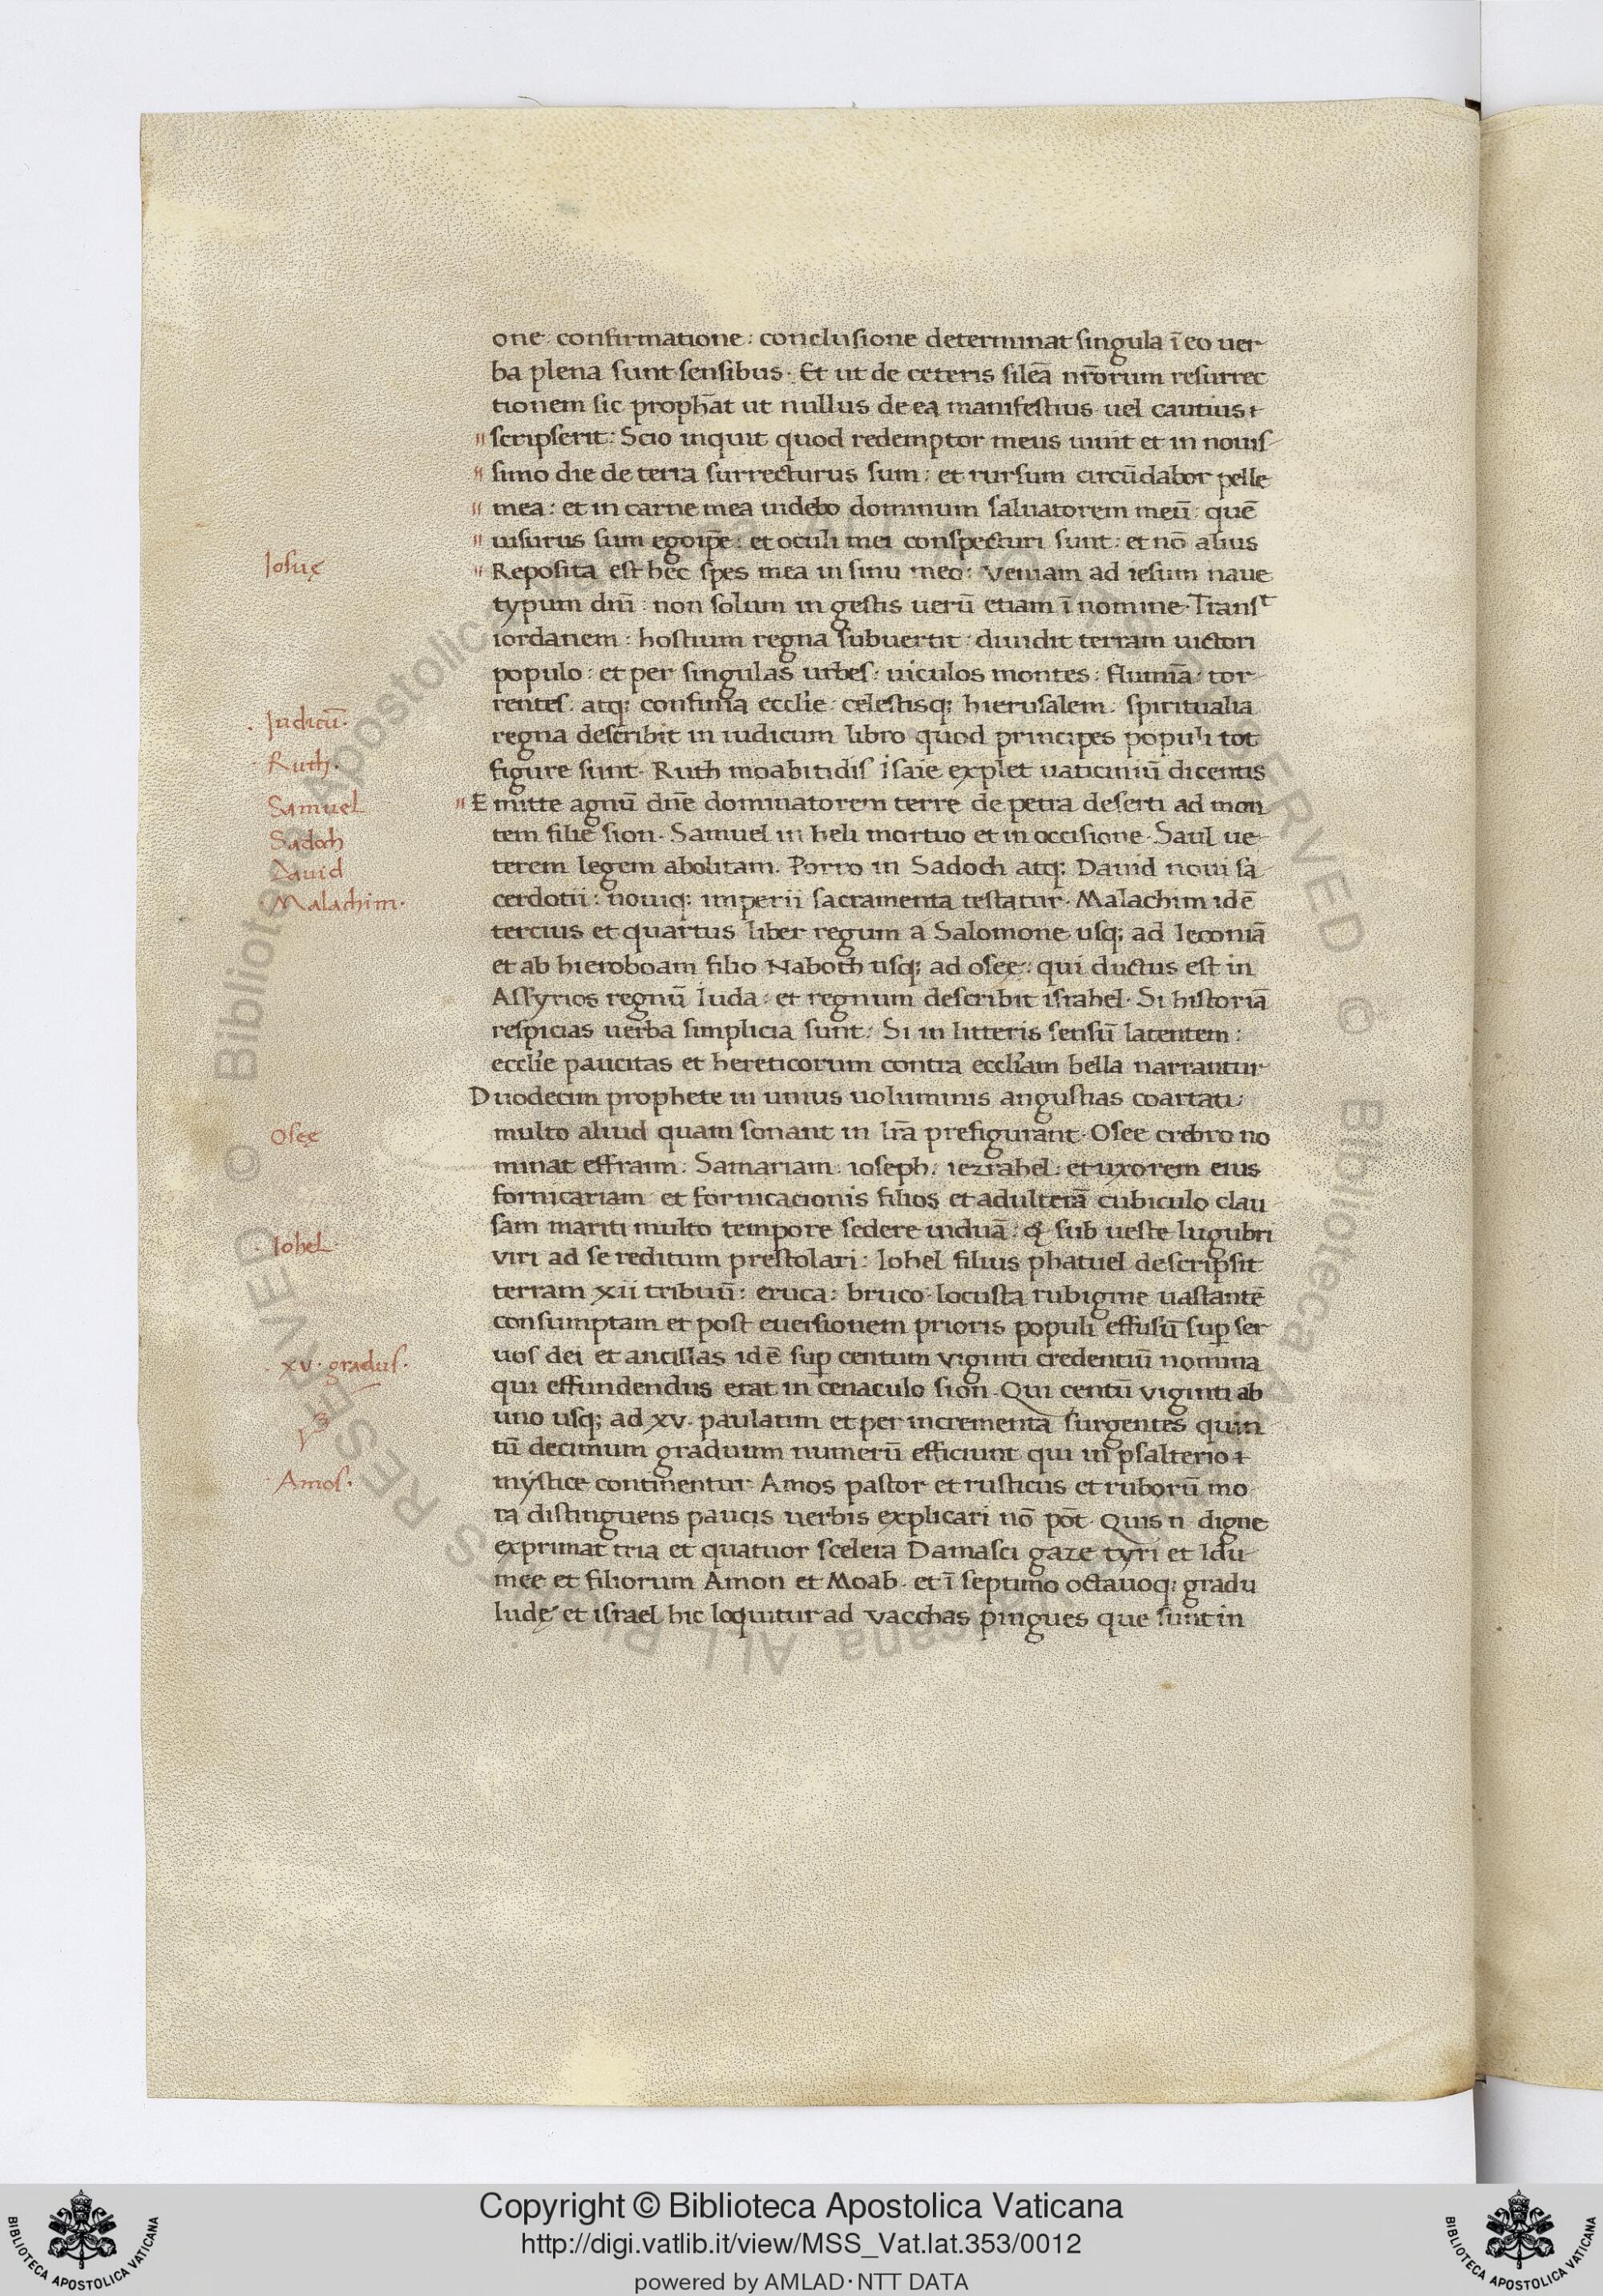 one· confirmatione: conclusione determinat singula ī eo uer
ba plena sunt sensibus· Et ut de ceteris sileā nr̄orum resurrec
tionem sic proph̄at ut nullus de ea manifestius uel cautius
scripserit: Scio inquit quod redemptor meus uiuit et in nouis
simo die de terra surrecturus sum: et rursum circūdabor pelle
mea: et in carne mea uidebo dominum saluatorem meū: quē
uisurus sum ego ip̄e: et oculi mei conspecturi sunt: et nō alius
Iosuę
Reposita est hec spes mea in sinu meo: Veniam ad iesum naue
typum dn̄i: non solum in gestis uerū etiam ī nomine· Transt
iordanem: hostium regna subuertit: diuidit terram uictori
populo: et per singulas urbes: uiculos montes: flumīa: tor
rentes· atq; confinia eccl̄ie· celestisq; hierusalem· spiritualia
Iudicū·
regna describit in iudicum libro quod principes populi tot
Ruth·
figure sunt· Ruth moabitidis isaie explet uaticiniū dicentis
Samuel
Emitte agnū dn̄e dominatorem terre de petra deserti ad mon
Sadoch
tem filie sion· Samuel in heli mortuo et in occisione Saul ue
Dauid
terem legem abolitam. Porro in Sadoch atq; Dauid noui sa
Malachim·
cerdotii: nouiq; imperii sacramenta testatur· Malachim idē
tercius et quartus liber regum a Salomone usq; ad Ieconiā
et ab hieroboam filio Naboth usq; ad osee: qui ductus est in
Assyrios regnū Iuda: et regnum describit israhel· Si historiā
respicias uerba simplicia sunt: Si in litteris sensū latentem:
eccl̄ie paucitas et hereticorum contra eccl̄iam bella narrantur
Duodecim prophete in unius uoluminis angustias coartati:
Osee
multo aliud quam sonant in lr̄a prefigurant· Osee crebro no
minat effraim: Samariam: ioseph: iezrahel: et uxorem eius
fornicariam et fornicacionis filios et adulterā cubiculo clau
sam mariti multo tempore sedere uiduā: & sub ueste lugubri
Iohel·
viri ad se reditum prestolari: Iohel filius phatuel descripsit
terram xii tribuū: eruca: bruco· locusta rubigine uastantē
consumptam et post euersionem prioris populi effusū sup ser
xv· gradus·
uos dei et ancillas idē sup centum viginti credentiū nomina
qui effundendus erat in cenaculo sion· Qui centū viginti ab
uno usq; ad xv· paulatim et per incrementa surgentes quin
tū decimum graduum numerū efficiunt qui in psalterio
Amos·
mystice continentur Amos pastor et rusticus et ruborū mo
ra distinguens paucis uerbis explicari nō pōt· Quis n̄ digne
exprimat tria et quatuor scelera Damasci gaze tyri et Idu
mee et filiorum Amon et Moab· et ī septimo octauoq; gradu
Iudę et israel hic loquitur ad vacchas pingues que sunt in
Copyright © Biblioteca Apostolica Vaticana
http://digi.vatlib.it/view/MSS_Vat.lat.353/0012
powered by AMLAD·NTT DATA